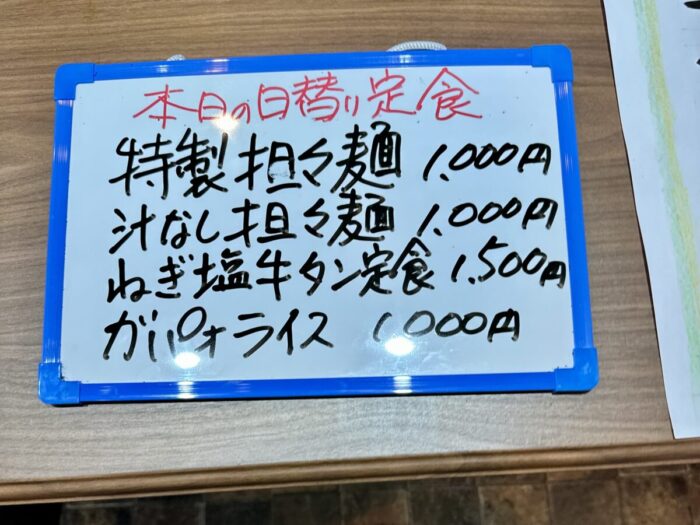 本日の日替り定食
特製担々麺 1.000円
汁なし担々麺 1.000円
ねぎ塩牛タン定食 1.500円
ガパオライス 1000円